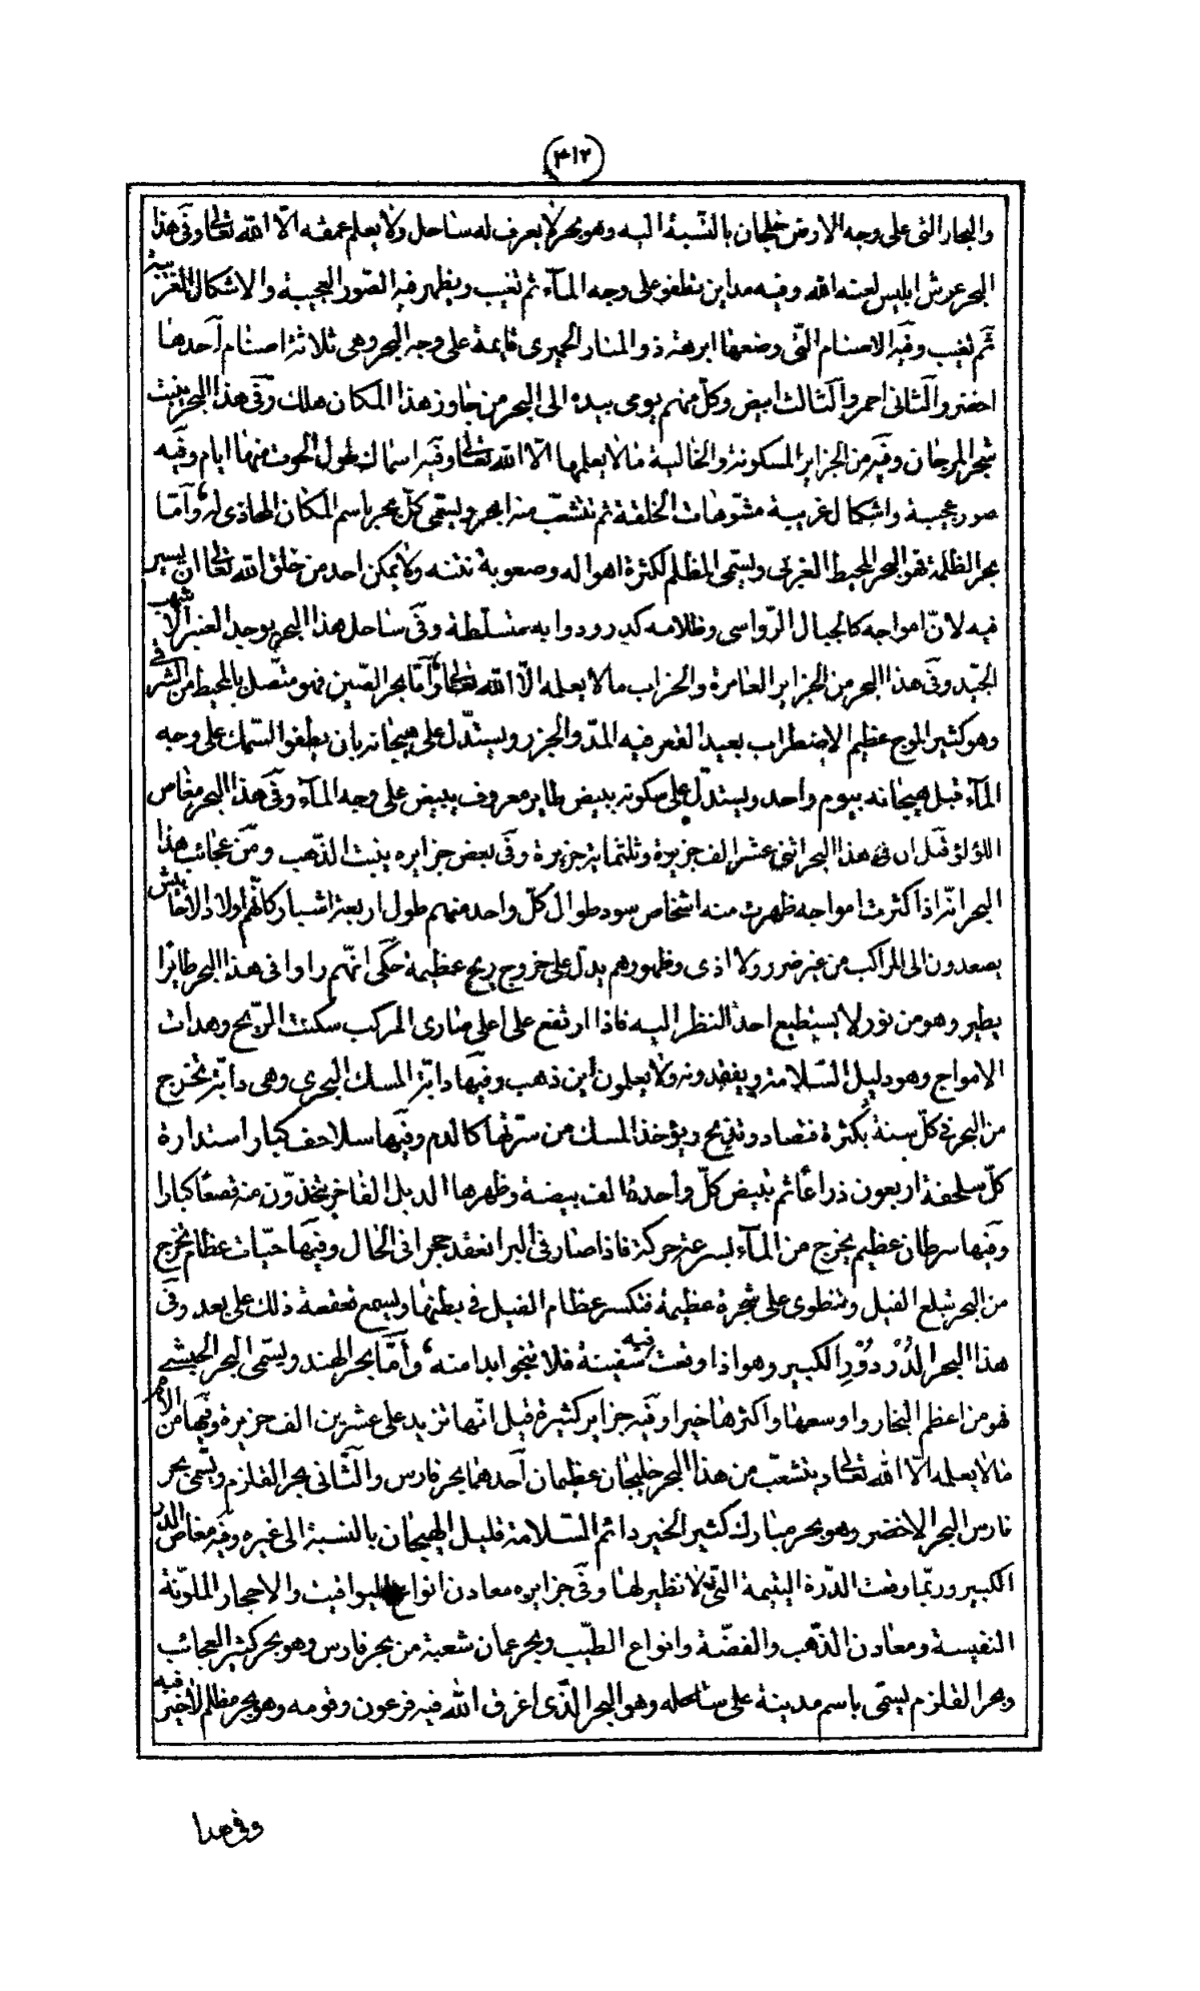 ٣١٢
والبحار التى على وجه الارض خلجان بالنسبة اليه وهو بحر لا يعرف له ساحل ولا يعلم عمقه الّا الله تعالى وفى هذا
البحر عرش ابليس لعنه الله وفيه مداين تطفو على وجه المآء ثم تغيب ويظهر فيه الصّور العجيبة والاشكال الغريبة
ثم تغيب وفيه الاصنام التّى وضعها ابرهة ذو المنار الحميرى قايمة على وجه البحر وهى ثلاثة اصنام احدها
اخضر والثانى احمر والثالث ابيض وكلّ منهم يومى بيده الى البحر من جاوز هذا المكان هلك وفى هذا البحر ينبت
شجر المرجان وفيه من الجزاير المسكونة والخالية مالا يعلمها الّا الله تعالى وفيه اسماك طول الحوت منها ايام وفيه
صور عجيبة واشكال غريبة مشوّهات الخلقة ثم تتشعّب منه ابحر ويسمّى كلّ بحر باسم المكان المحاذى له، وامّا
بحر الظلمة فهو البحر المحيط الغربى ويسمّى المظلم لكثرة اهواله وصعوبة نتنه ولا يمكن احد من خلق الله تعالى ان يسير
فيه لانّ امواجه كالجبال الرّواسى وظلامه كدر ودوابه متسلّطة وفى ساحل هذا البحر يوجد العنبر الاشهب
الجيّد وفى هذا البحر من الجزاير العامرة والخراب مالا يعلمه الّا الله تعالى، وامّا بحر الصّين فهو متّصل بالمحيط من الشرقى
وهو كثير الموج عظيم الاضطراب بعيد القعر فيه المدّ والجزر ويستدّل على هيجانه بان يطفوا السّمك على وجه
المآء قبل هيجانه بيوم واحد ويستدّل على سكونه ببيض طاير معروف يبيض على وجه المآء وفى هذا البحر مغاص
اللؤلؤ قيل ان فى هذا البحر اثنى عشر الف جزيرة وثلثماية جزيرة وفى بعض جزايره ينبت الذّهب ومن عجائب هذا
البحر انّه اذا كثرت امواجه ظهرت منه اشخاص سود طوال كلّ واحد منهم طول اربعة اشبار كانّهم اولاد الاحابيش
يصعدون الى المراكب من غير ضرر ولا اذى وظهورهم يدلّ على خروج ريح عظيمة حكى انّهم راوا فى هذا البحر طايرًا
يطير وهو من نور لا يستطيع احد النظر اليه فاذا ارتفع على اعلى صارى المركب سكنت الرّيح وهدات
الامواج وهو دليل السّلامة ويفقدونه ولا يعلمون اين ذهب وفيها دابّة المسك البحرى وهى دابّة تخرج
من البحر فى كلّ سنة بكثرة فتصاد وتذبح ويؤخذ المسك من سرّتها كالدم وفيها سلاحف كبار استدارة
كلّ سلحفة اربعون ذراعًا ثم تبيض كلّ واحدة الف بيضة وظهرها الدبل الفاخر يتخذّون منه قصعًا كبارا
وفيها سرطان عظيم يخرج من المآء بسرعة حركة فاذا صار فى البر انعقد حجرا فى الحال وفيها حيّات عظام تخرج
من البحر تبلع الفيل وتنطوى على شجرة عظيمة فتكسر عظام الفيل فى بطنها ويسمع قعقعة ذلك على بعد وفى
هذا البحر الدُرْدُوْرِ الكبير وهو اذا وقعت فيه سفينة فلا تنجوا ابدا منه، وامّا بحر الهند ويسمّى البحر الحبشى
فهو من اعظم البحار واوسعها واكثرها خيرا وفيه جزاير كثيرة قيل انّها تزيد على عشرين الف جزيرة وفيها من الامم
مالا يعلمه الّا الله تعالى ويتشعّب من هذا البحر خليجان عظيمان احدهما بحر فارس والثّانى بحر القلزم ويسّمى بحر
فارس البحر الاخضر وهو بحر مبارك كثير الخير دائم السّلامة قليل الهيجان بالنسبة الى غيره وفيه مغاص الدر
الكبير وربّما وقعت الدّرة اليتيمة التّى لا نظير لها وفى جزايره معادن انواع اليواقيت والاحجار الملوّنة
النفيسة ومعادن الذّهب والفضّة وانواع الطّيب وبحر عمان شعبة من بحر فارس وهو بحر كثير العجائب
وبحر القلزم يسمّى باسم مدينة على ساحله وهو البحر الّذى اغرق الله فيه فرعون وقومه وهو بحر مظلم لا خير فيه
وفى هذا